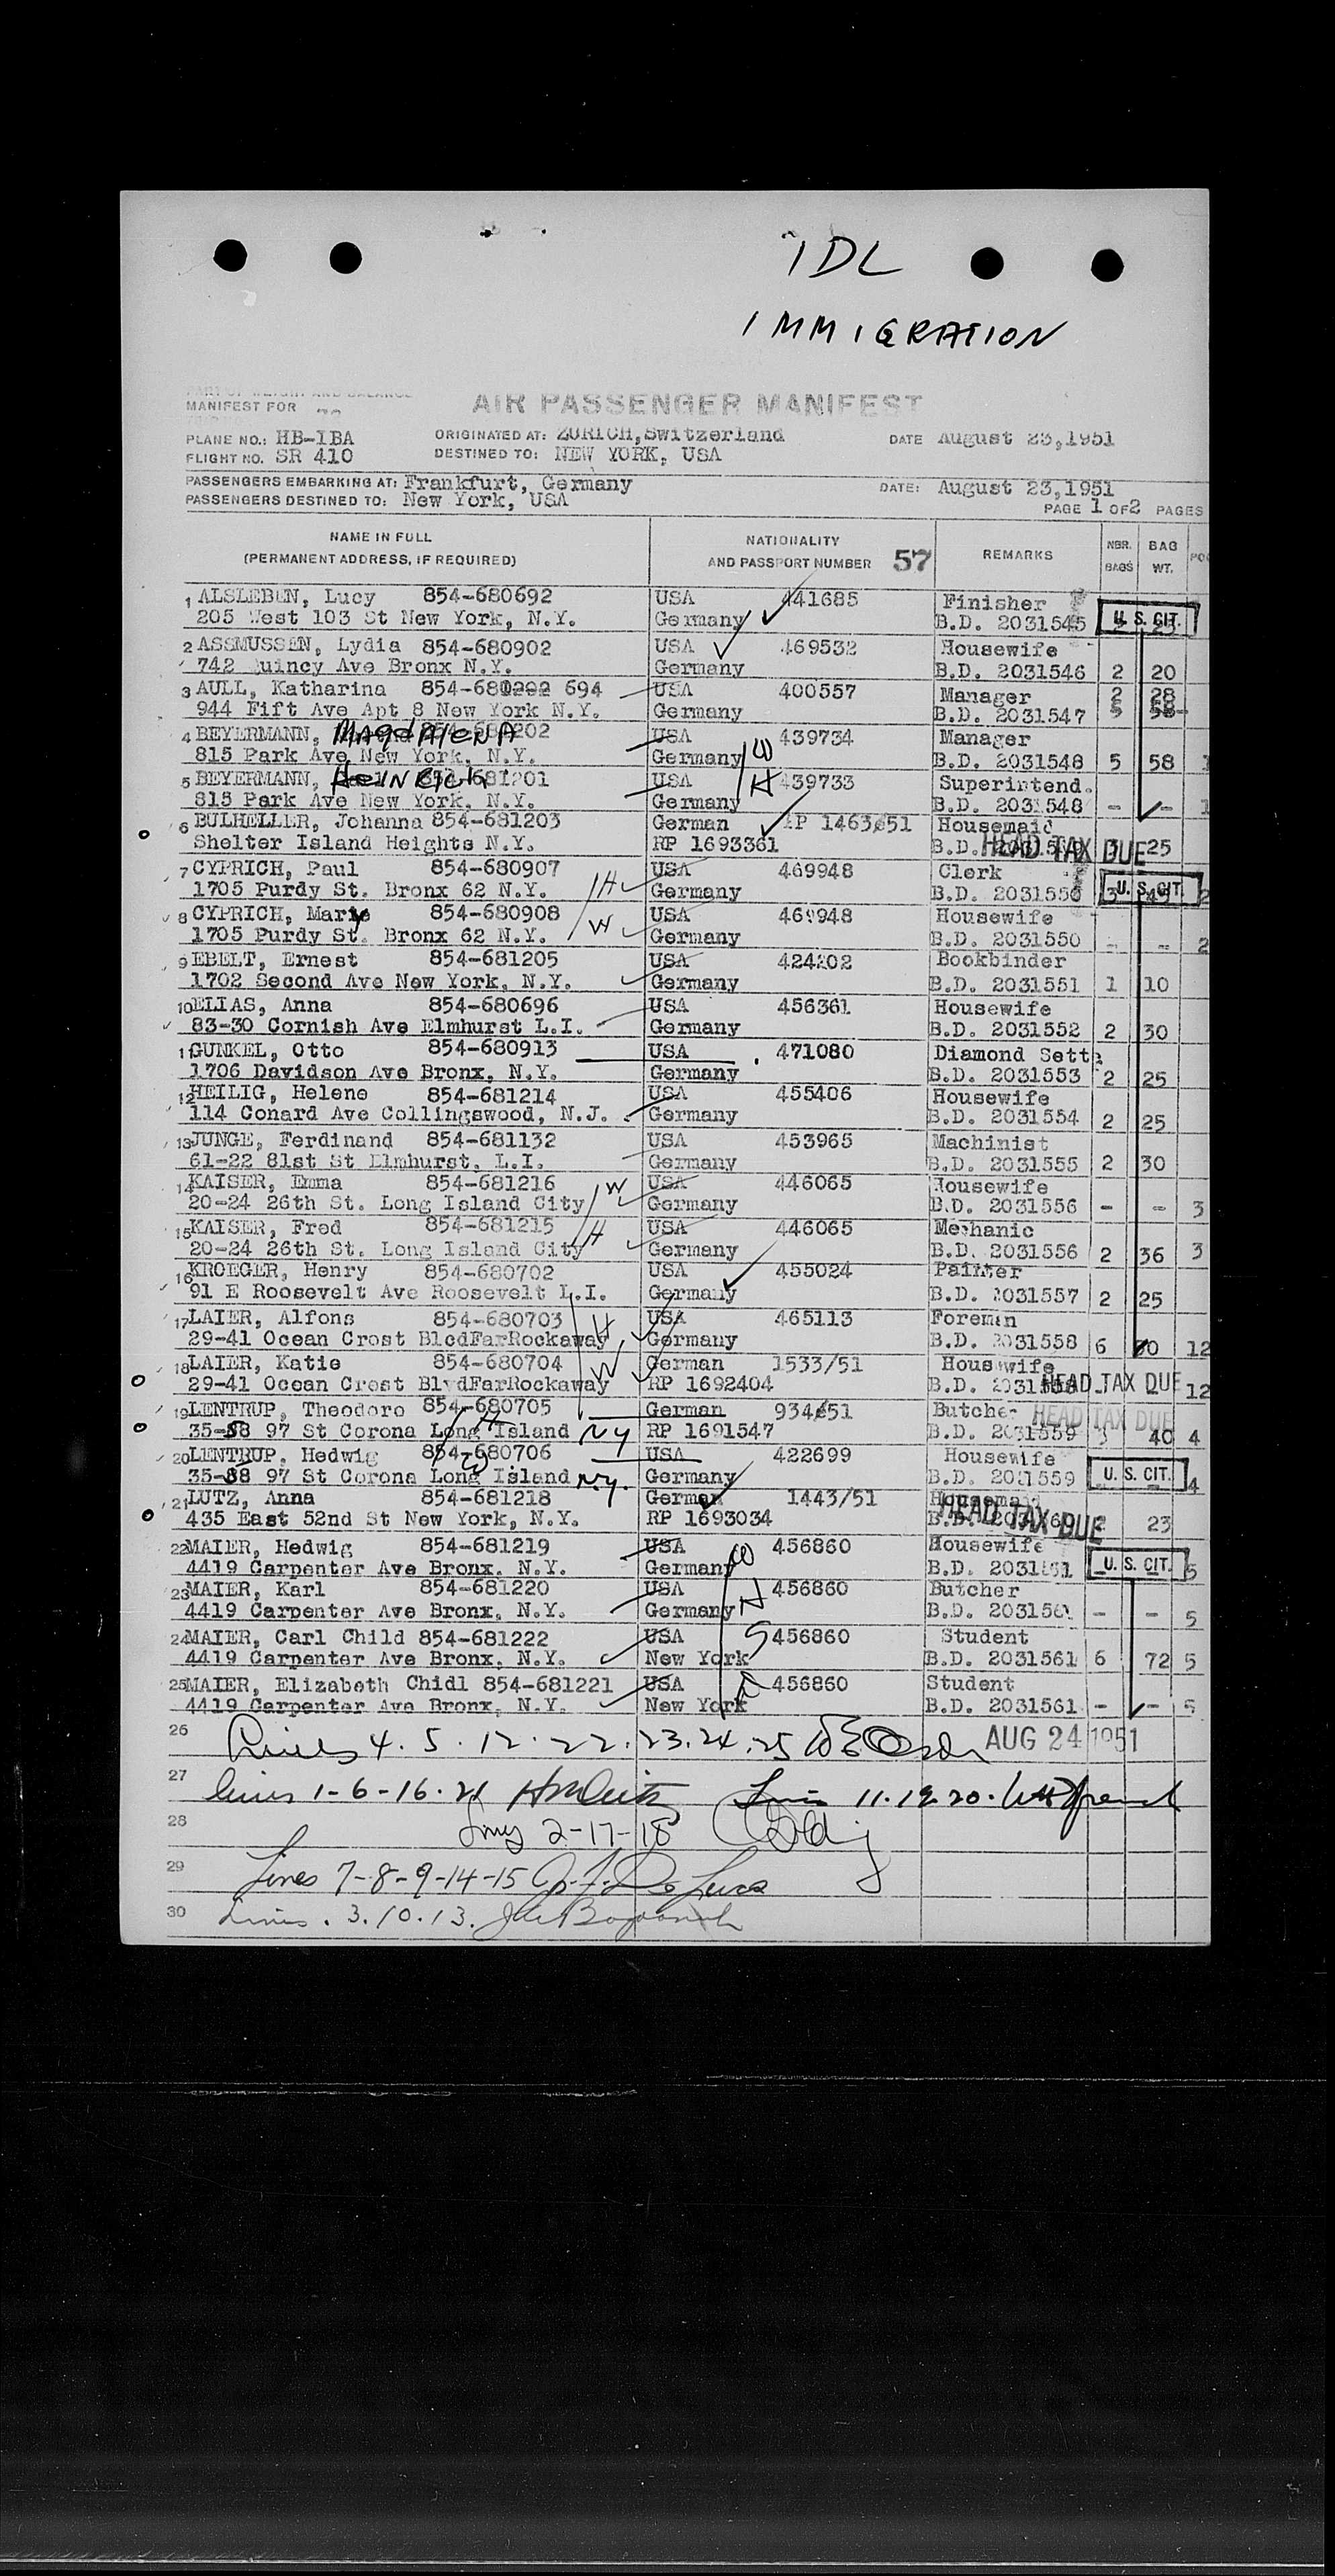 IDL
IMMIGRATION
MANIFEST FOR
AIR PASSENGER MANIFEST
PLANE NO.: HB-IBA ORIGINATED AT: ZURICH, Switzerland DATE August 23,1951
FLIGHT NO. SR 410 DESTINED TO: NEW YORK, USA
PASSENGERS EMBARKING AT: Frankfurt, Germany DATE: August 23,1951
PASSENGERS DESTINED TO: New York, USA PAGE 1 OF 2 PAGES
NAME IN FULL NATIONALITY REMARKS NBR. BAG
(PERMANENT ADDRESS, IF REQUIRED) AND PASSPORT NUMBER 57 BAGS WT.
1 ALSLEBEN, Lucy 854-680692 USA 441685 Finisher
205 West 103 St New York, N.Y. Germany B.D. 2031545 U. S. CIT.
2 ASSMUSSEN, Lydia 854-680902 USA 469532 Housewife
742 Quincy Ave Bronx N.Y. Germany B.D. 2031546 2 20
3 AULL, Katharina 854-680202 694 USA 400557 Manager 2 28
944 Fift Ave Apt 8 New York N.Y. Germany B.D. 2031547
4 BEYERMANN, MAGDALENA 202 USA 439734 Manager
815 Park Ave New York, N.Y. Germany W B.D. 2031548 5 58 1
5 BEYERMANN, HEINRICH 681201 USA H 439733 Superintend.
815 Park Ave New York, N.Y. Germany B.D. 2031548 - - 1
6 BULHELLER, Johanna 854-681203 German RP 1463/51 Housemaid
Shelter Island Heights N.Y. RP 1693361 B.D. HEAD TAX DUE 25
7 CYPRICH, Paul 854-680907 USA 469948 Clerk
1705 Purdy St. Bronx 62 N.Y. H Germany B.D. 2031550 3 U. S. CIT. 2
8 CYPRICH, Mary 854-680908 USA 469948 Housewife
1705 Purdy St. Bronx 62 N.Y. W Germany B.D. 2031550 - - 2
9 EBELT, Ernest 854-681205 USA 424202 Bookbinder
1702 Second Ave New York, N.Y. Germany B.D. 2031551 1 10
10 ELIAS, Anna 854-680696 USA 456361 Housewife
83-30 Cornish Ave Elmhurst L.I. Germany B.D. 2031552 2 30
11 GUNKEL, Otto 854-680913 USA 471080 Diamond Sette
1706 Davidson Ave Bronx, N.Y. Germany B.D. 2031553 2 25
12 HEILIG, Helene 854-681214 USA 455406 Housewife
114 Conard Ave Collingswood, N.J. Germany B.D. 2031554 2 25
13 JUNGE, Ferdinand 854-681132 USA 453965 Machinist
61-22 81st St Elmhurst, L.I. Germany B.D. 2031555 2 30
14 KAISER, Emma 854-681216 W USA 446065 Housewife
20-24 26th St. Long Island City Germany B.D. 2031556 - - 3
15 KAISER, Fred 854-681215 H USA 446065 Mechanic
20-24 26th St. Long Island City Germany B.D. 2031556 2 36 3
16 KROEGER, Henry 854-680702 USA 455024 Painter
91 E Roosevelt Ave Roosevelt L.I. Germany B.D. 2031557 2 25
17 LAIER, Alfons 854-680703 H USA 465113 Foreman
29-41 Ocean Crest BlcdFarRockaway Germany B.D. 2031558 6 12
18 LAIER, Katie 854-680704 W German 1533/51 Housewife
29-41 Ocean Crest BlvdFarRockaway RP 1692404 B.D. HEAD TAX DUE 12
19 LENTRUP, Theodoro 854-680705 H German 934/51 Butcher HEAD TAX DUE
35-38 97 St Corona Long Island NY RP 1691547 B.D. 2031559 3 40 4
20 LENTRUP, Hedwig 854-680706 W USA 422699 Housewife
35-38 97 St Corona Long Island N.Y. Germany B.D. 2031559 U. S. CIT. 4
21 LUTZ, Anna 854-681218 German 1443/51 Housemaid
435 East 52nd St New York, N.Y. RP 1693034 HEAD TAX DUE 2 23
22 MAIER, Hedwig 854-681219 USA W 456860 Housewife
4419 Carpenter Ave Bronx, N.Y. Germany B.D. 2031561 U. S. CIT. 5
23 MAIER, Karl 854-681220 USA 456860 Butcher
4419 Carpenter Ave Bronx, N.Y. Germany H B.D. 2031561 - - 5
24 MAIER, Carl Child 854-681222 USA S 456860 Student
4419 Carpenter Ave Bronx, N.Y. New York B.D. 2031561 6 72 5
25 MAIER, Elizabeth Chidl 854-681221 USA 456860 Student
4419 Carpenter Ave Bronx, N.Y. New York B.D. 2031561 - - 5
26 Lines 4. 5. 12. 22. 23. 24. 25 AUG 24 1951
27 lines 1-6-16-21 Lines 11. 19. 20.
28 Lines 2-17-18
29 Lines 7-8-9-14-15
30 Lines. 3. 10. 13.